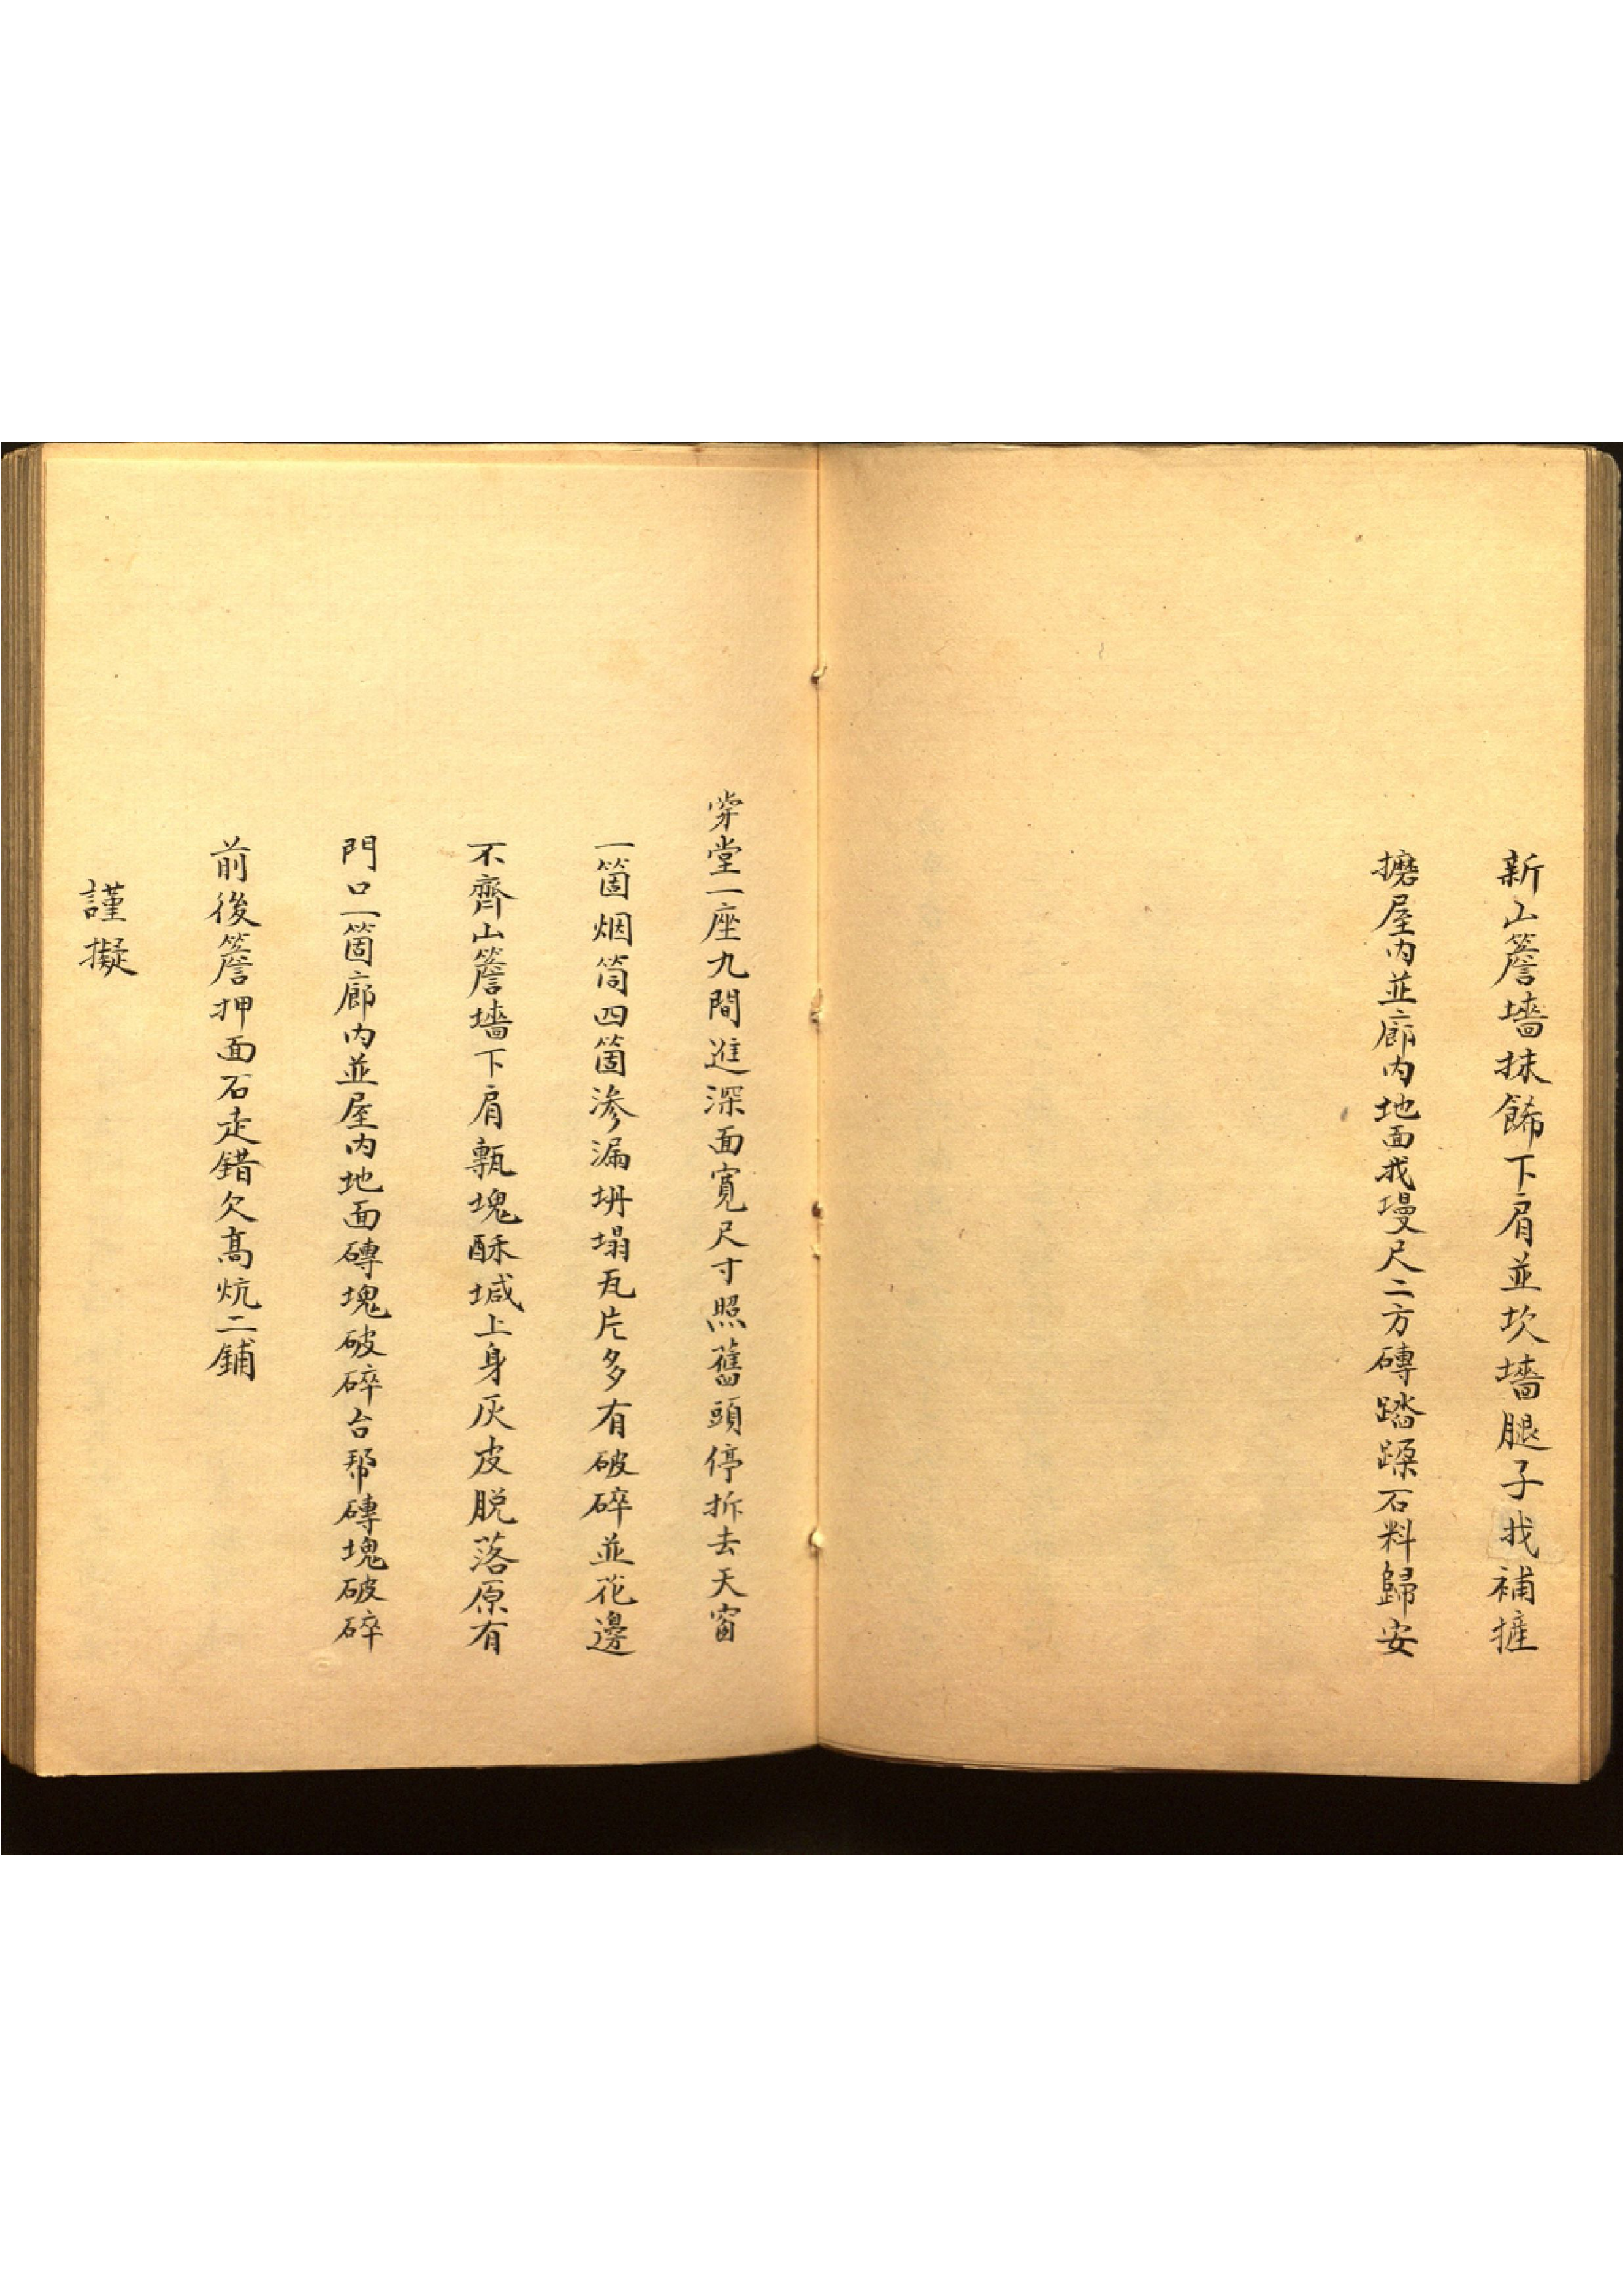 新山簷墻抹餙下肩並坎墻腿子找補摧
攠屋內並廊內地面找墁尺二方磚踏跺石料歸安
穿堂一座九間進深面寬尺寸照舊頭停拆去天窗
一箇烟筒四箇渗漏坍塌瓦片多有破碎並花邊
不齊山簷墻下肩甎塊酥堿上身灰皮脱落原有
門口一箇廊內並屋內地面磚塊破碎台帮磚塊破碎
前後簷押面石走錯欠高炕二鋪
謹擬